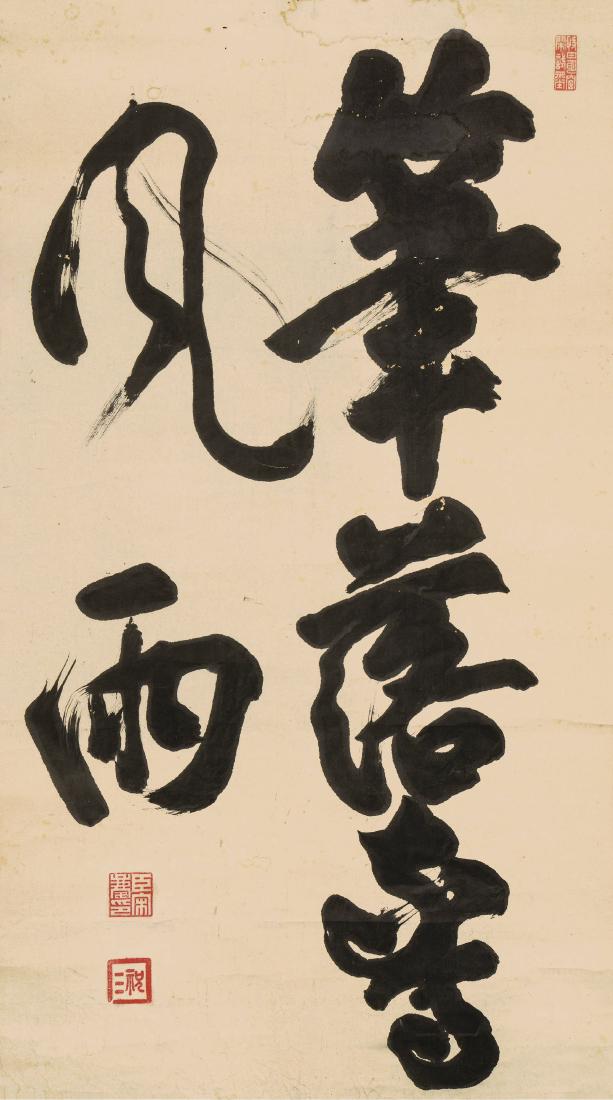 筆落驚
風雨